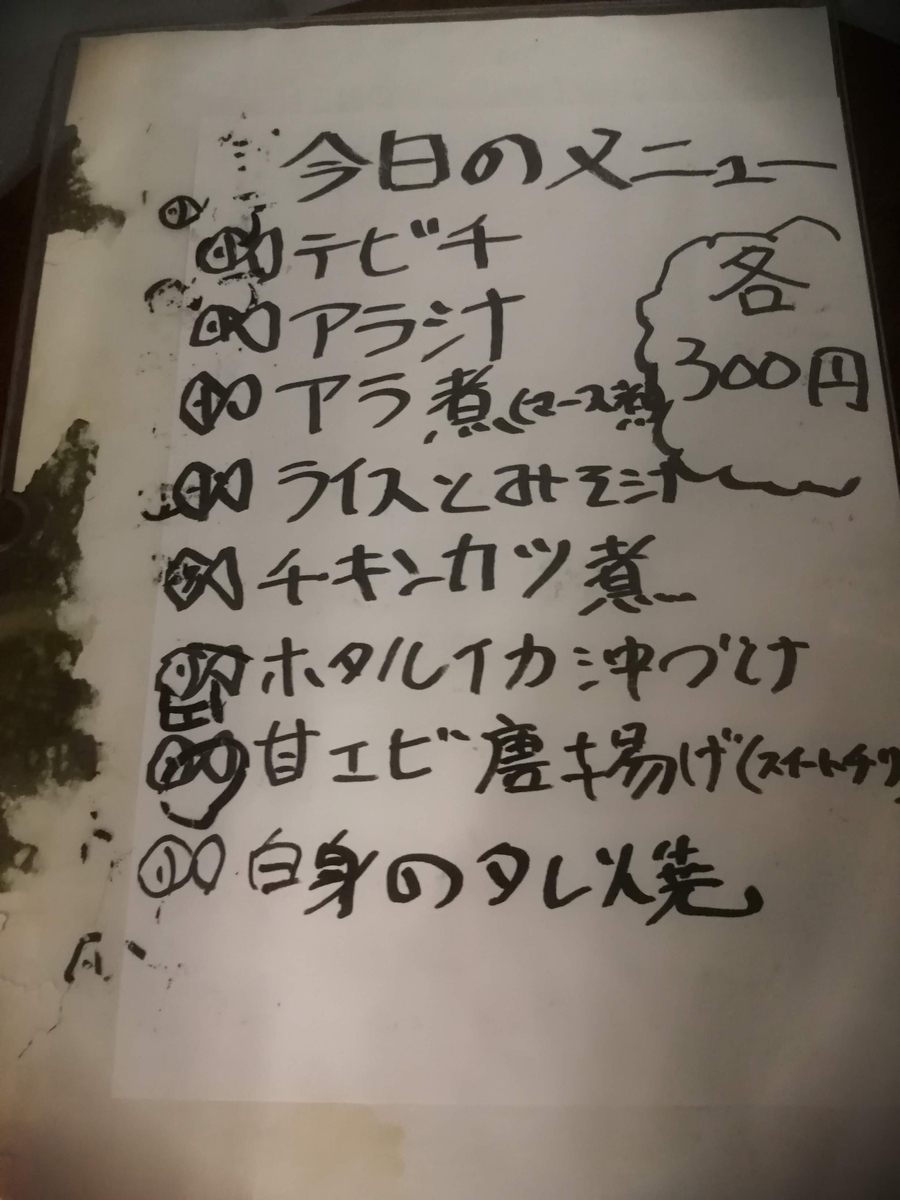 今日のメニュー
テビチ
各
300円
アラ汁
アラ煮(マース煮
ライスとみそ汁
チキンカツ煮
ホタルイカ沖づけ
甘エビ唐揚げ(スイートチリ
白身のタレ焼